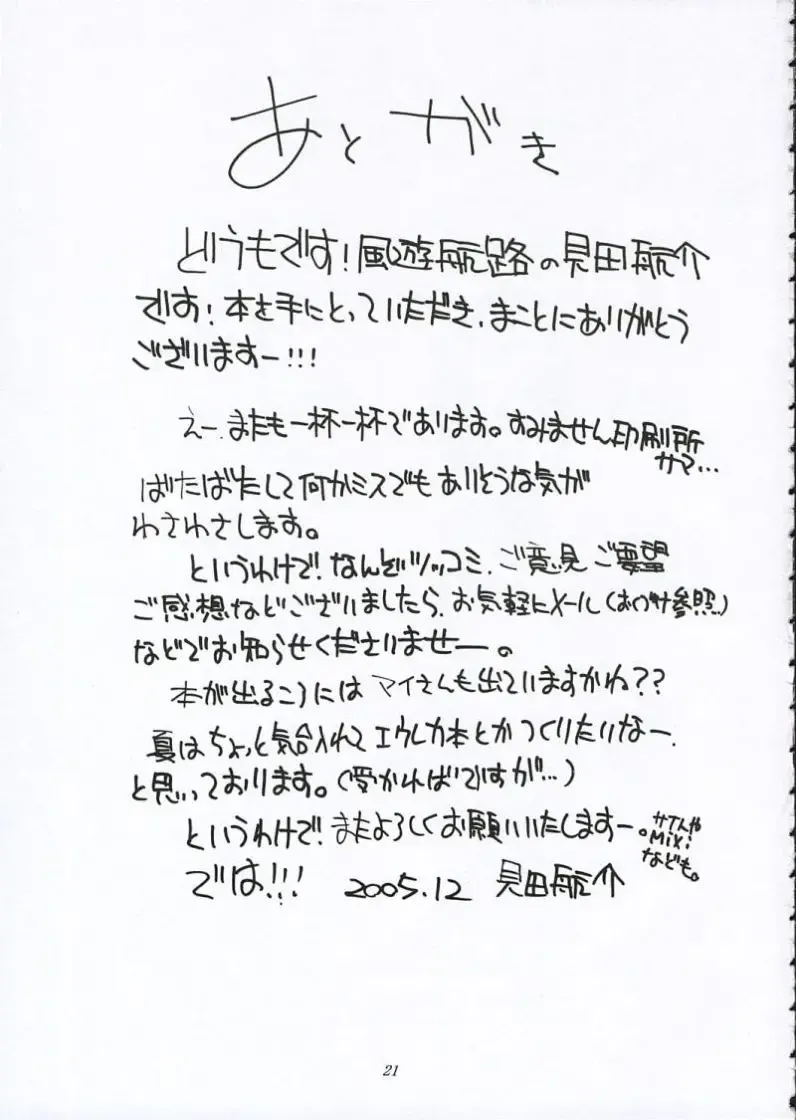 あとがき
どうもです！風遊航路の見田航介
です！本を手にとっていただき、まことにありがとう
ございますー!!!
えー、またも一杯一杯であります。すみません印刷所
サマ…
ばたばたして何かミスでもありそうな気が
わさわさします。
というわけで！なんぞツッコミ、ご意見ご要望
ご感想などございましたら、お気軽にメール(おくづけ参照)
などでお知らせくださいませー。
本が出るころにはマイさんも出ていますかね??
夏はちょっと気合入れてエウレカ本とかつくりたいなー、
と思っております。(受かればですが…)
というわけで！またよろしくお願いいたしますー。
サイトや
MiXi
なども。
では!!! 2005.12 見田航介
21